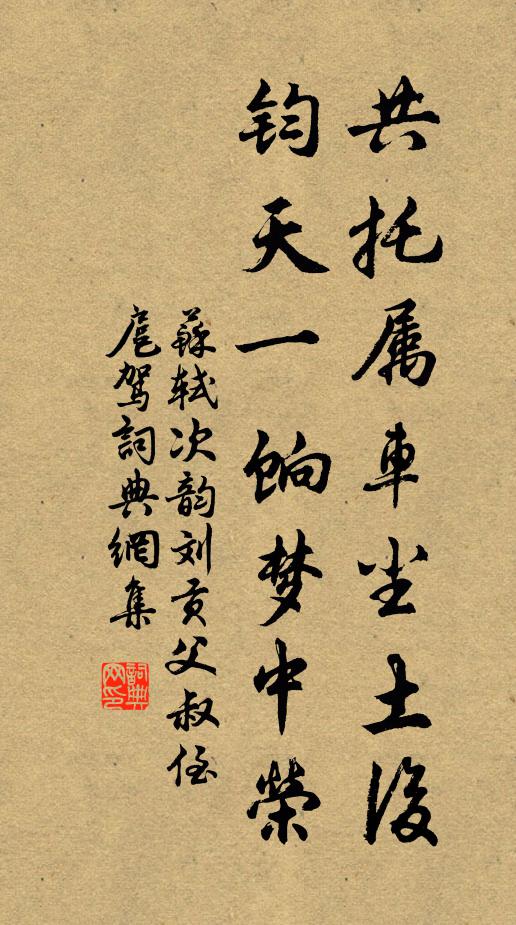 共托属車尘土後
钧天一饷梦中榮
蘇轼次韵刘贡父叔侄
扈驾詞典網集
詞典网印